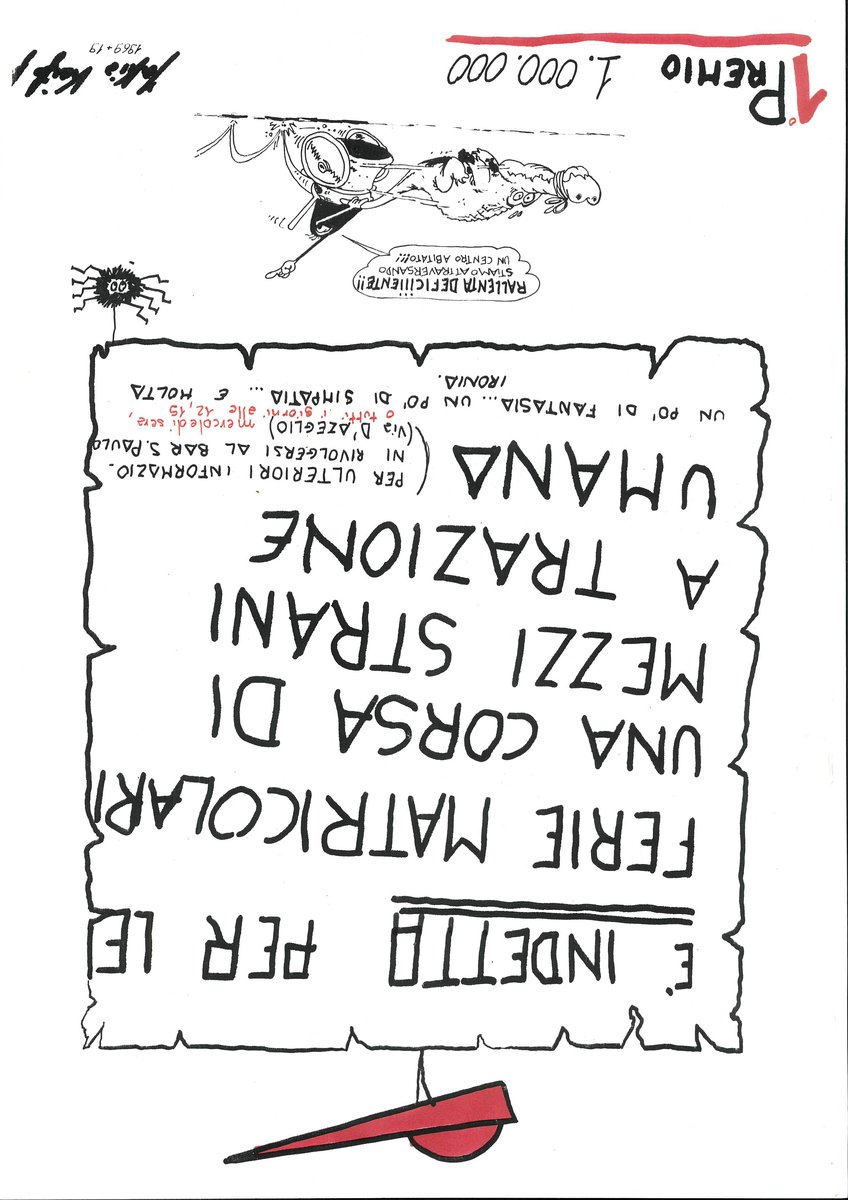 È INDETTA PER LE
FERIE MATRICOLARI
UNA CORSA DI
MEZZI STRANI
A TRAZIONE
UMANA
(PER ULTERIORI INFORMAZIO.
NI RIVOLGERSI AL BAR S. PAULO
(Via D'AZEGLIO) mercoledi sera,
o tutti i giorni alle 12,15
UN PO' DI FANTASIA... UN PO' DI SIMPATIA ... E MOLTA
IRONIA.
RALLENTA DEFICIIIIENTE!!
STIAMO ATTRAVERSANDO
UN CENTRO ABITATO!!!
1° PREMIO 1.000.000
1969+19